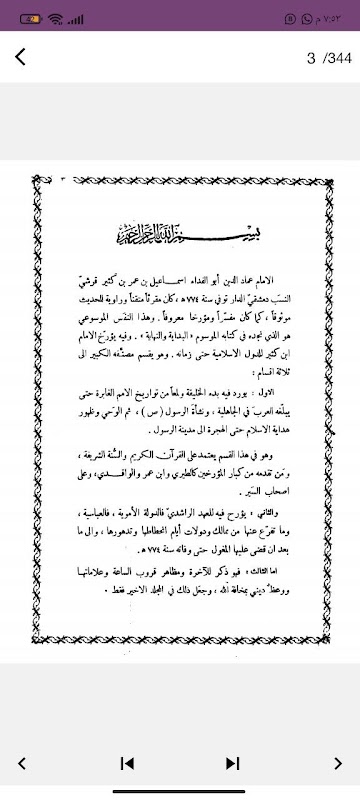 ٧:٥٢ م
42
3 /344
٣
بسم الله الرحمن الرحيم
الامام عماد الدين أبو الفداء اسماعيل بن عمر بن كثير قرشيّ
النسَب دمشقيّ الدار توفي سنة ٧٧٤ هـ ، كان مقرئاً متقناً وراوية للحديث
موثوقاً ، كما كان مفسّراً ومؤرخا معروفاً . وهذا النفَس الموسوعي
هو الذي نجده في كتابه الموسوم « البداية والنهاية » . وفيه يؤرخ الامام
ابن كثير للدول الاسلامية حتى زمانه . وهو يقسم مصنّفه الكبير الى
ثلاثة اقسام :
الاول : يورد فيه بدء الخليقة ولمعاً من تواريخ الامم الغابرة حتى
يبلغه العربَ في الجاهلية ، ونشأة الرسول ( ص ) ، ثم الوحي وظهور
هداية الاسلام حتى الهجرة الى مدينة الرسول .
وهو في هذا القسم يعتمد على القرآن الكريم والسُّنة الشريفة ،
ومَن تقدمه من كبار المؤرخين كالطبري وابن عمر والواقدي، وعلى
اصحاب السيَر .
والثاني : يؤرخ فيه للعهد الراشديّ فالدولة الأموية ، فالعباسية ،
وما تفرّع عنها من ممالك ودويلات أيام انحطاطها وتدهورها ، والى ما
بعد ان قضى عليها المغول حتى وفاته سنة ٧٧٤ هـ .
اما الثالث : فهو ذكر للآخرة ومظاهر قروب الساعة وعلاماتها
ووعظٌ ديني بمخافة الله ، وجعَل ذلك في المجلد الاخير فقط .